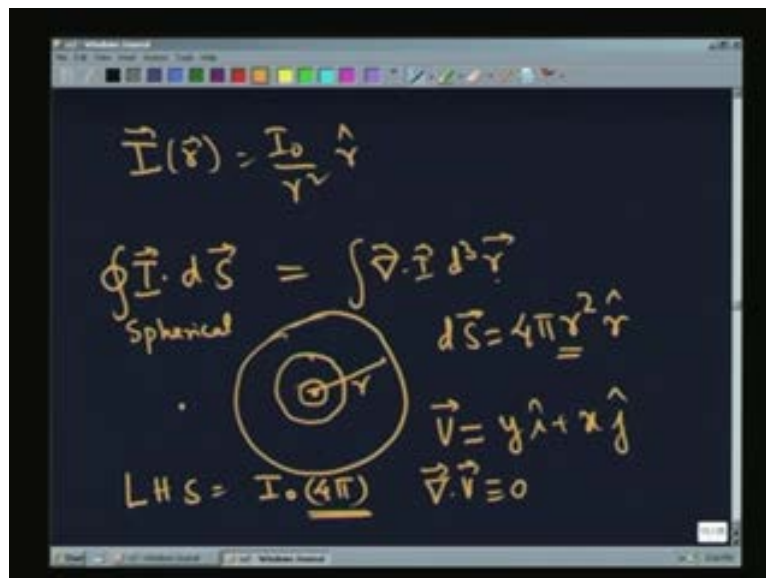 I⃗(r⃗) = I₀/r² r̂
∮ I⃗ · dS⃗ = ∫ ∇⃗ · I⃗ d³r⃗
Spherical
r
dS⃗ = 4π r² r̂
V⃗ = y î + x ĵ
LHS = I₀ (4π)
∇⃗ · V⃗ ≡ 0